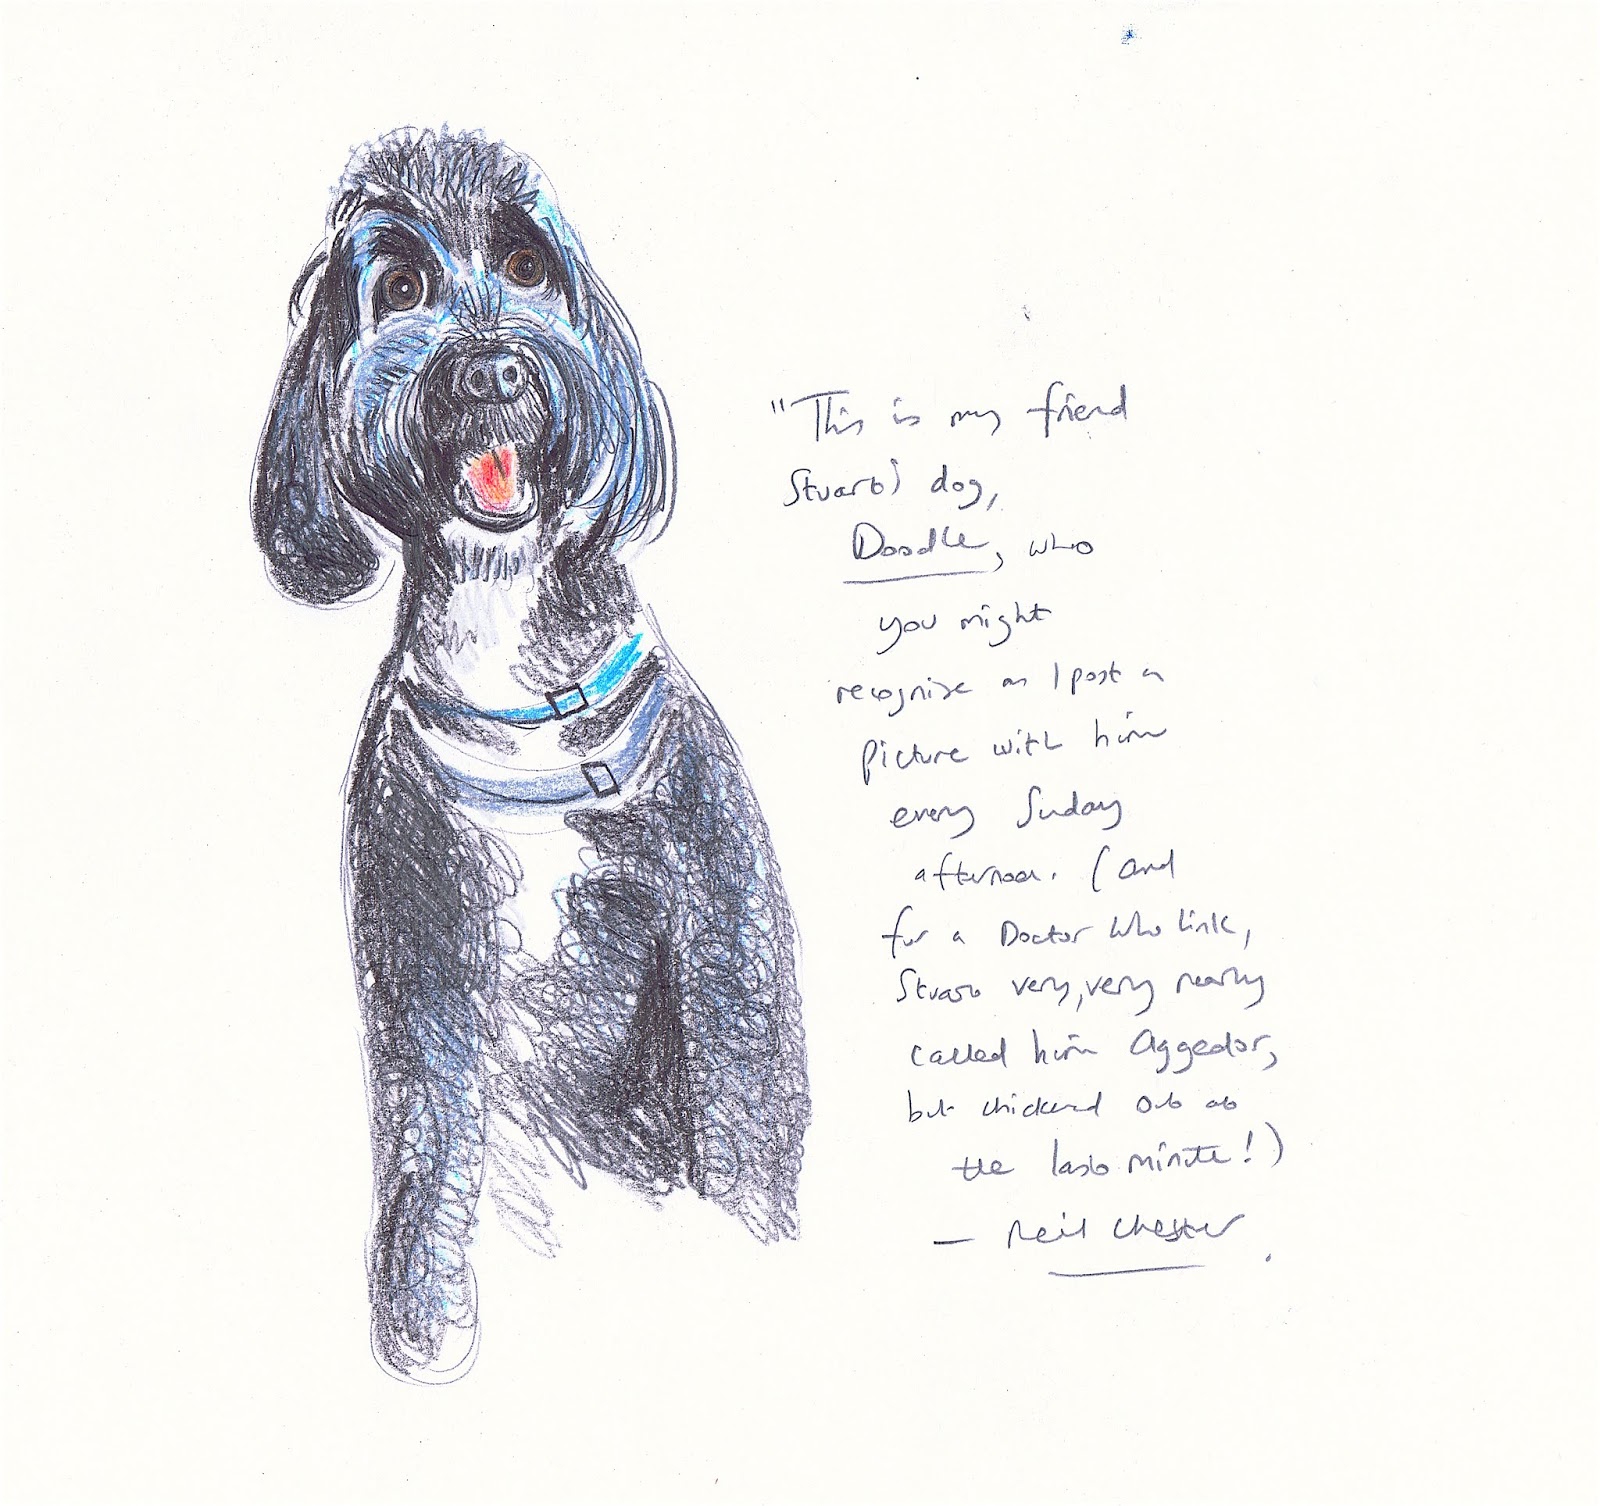 "This is my friend
Stuart's dog,
Doodle, who
you might
recognise as I post a
picture with him
every Sunday
afternoon. (and
for a Doctor Who link,
Stuart very, very nearly
called him Aggedor,
but chickened out at
the last minute!)
— Neil Chester.